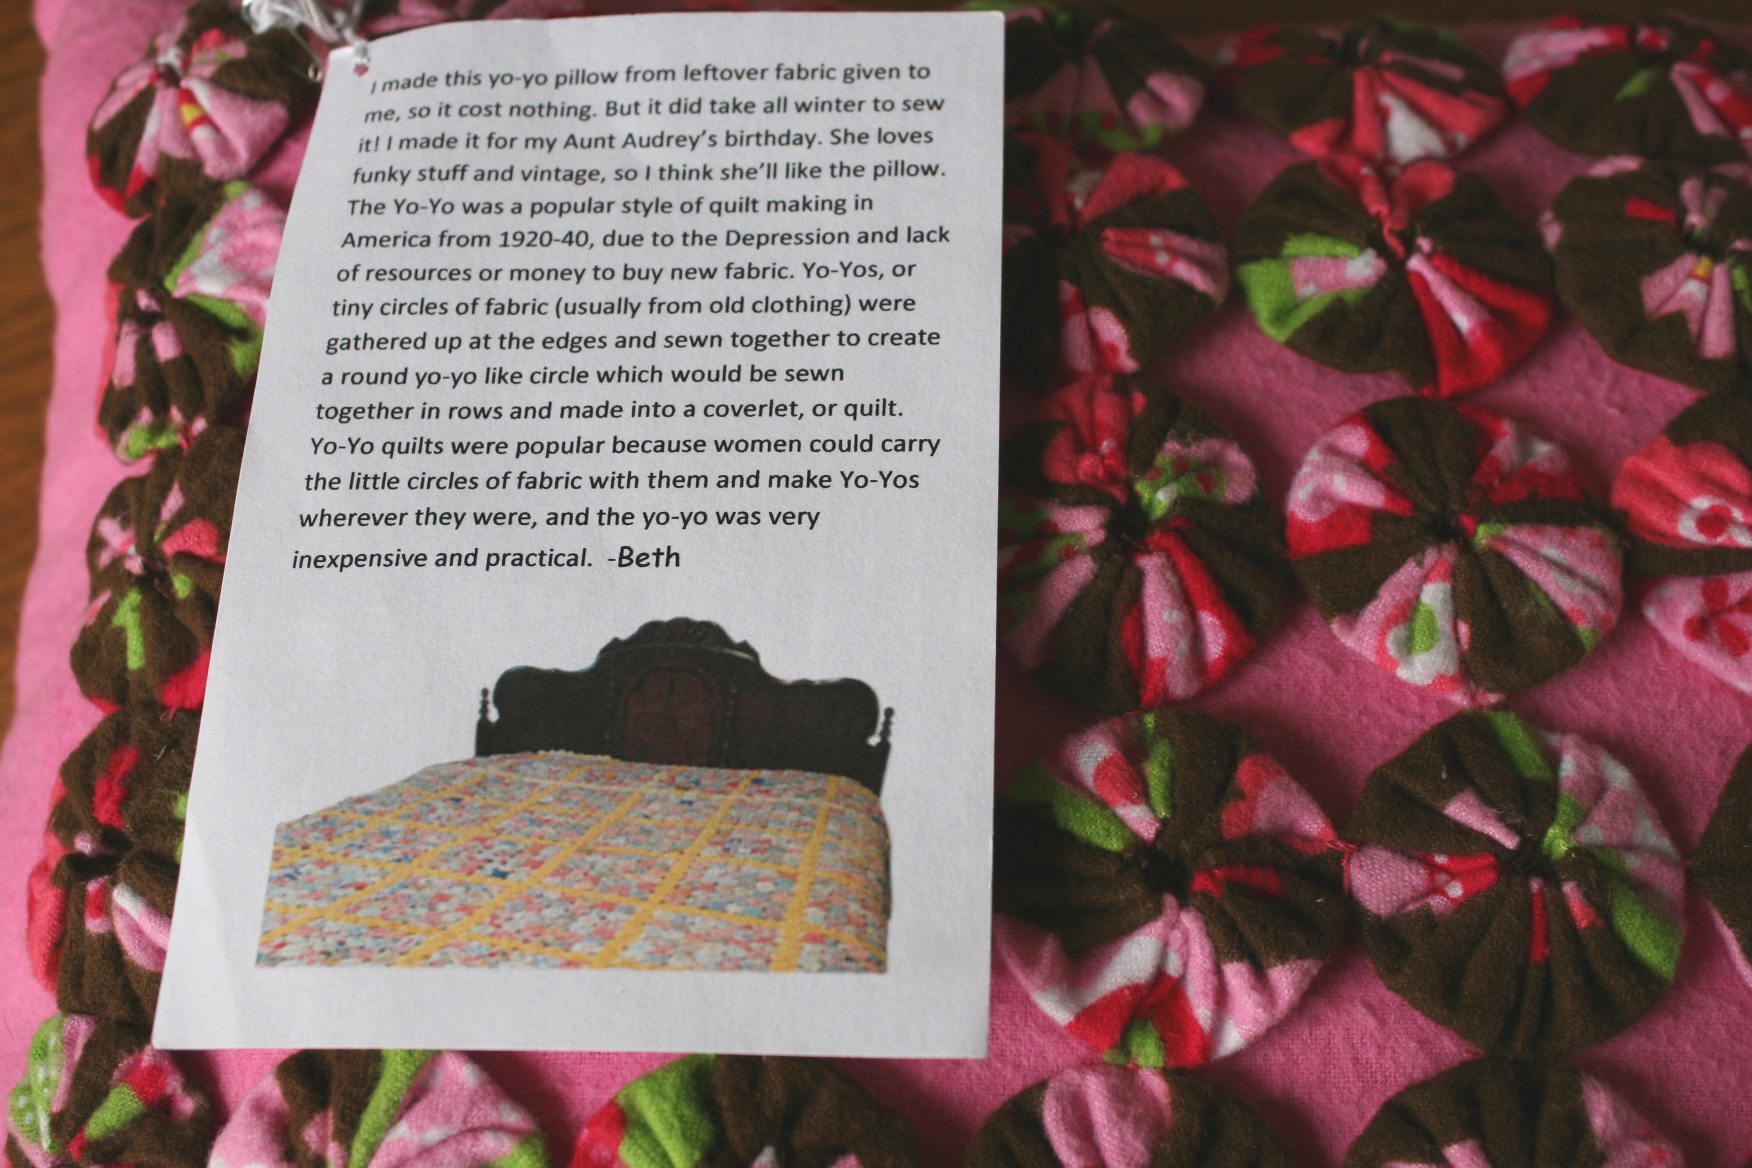 I made this yo-yo pillow from leftover fabric given to
me, so it cost nothing. But it did take all winter to sew
it! I made it for my Aunt Audrey's birthday. She loves
funky stuff and vintage, so I think she'll like the pillow.
The Yo-Yo was a popular style of quilt making in
America from 1920-40, due to the Depression and lack
of resources or money to buy new fabric. Yo-Yos, or
tiny circles of fabric (usually from old clothing) were
gathered up at the edges and sewn together to create
a round yo-yo like circle which would be sewn
together in rows and made into a coverlet, or quilt.
Yo-Yo quilts were popular because women could carry
the little circles of fabric with them and make Yo-Yos
wherever they were, and the yo-yo was very
inexpensive and practical. -Beth